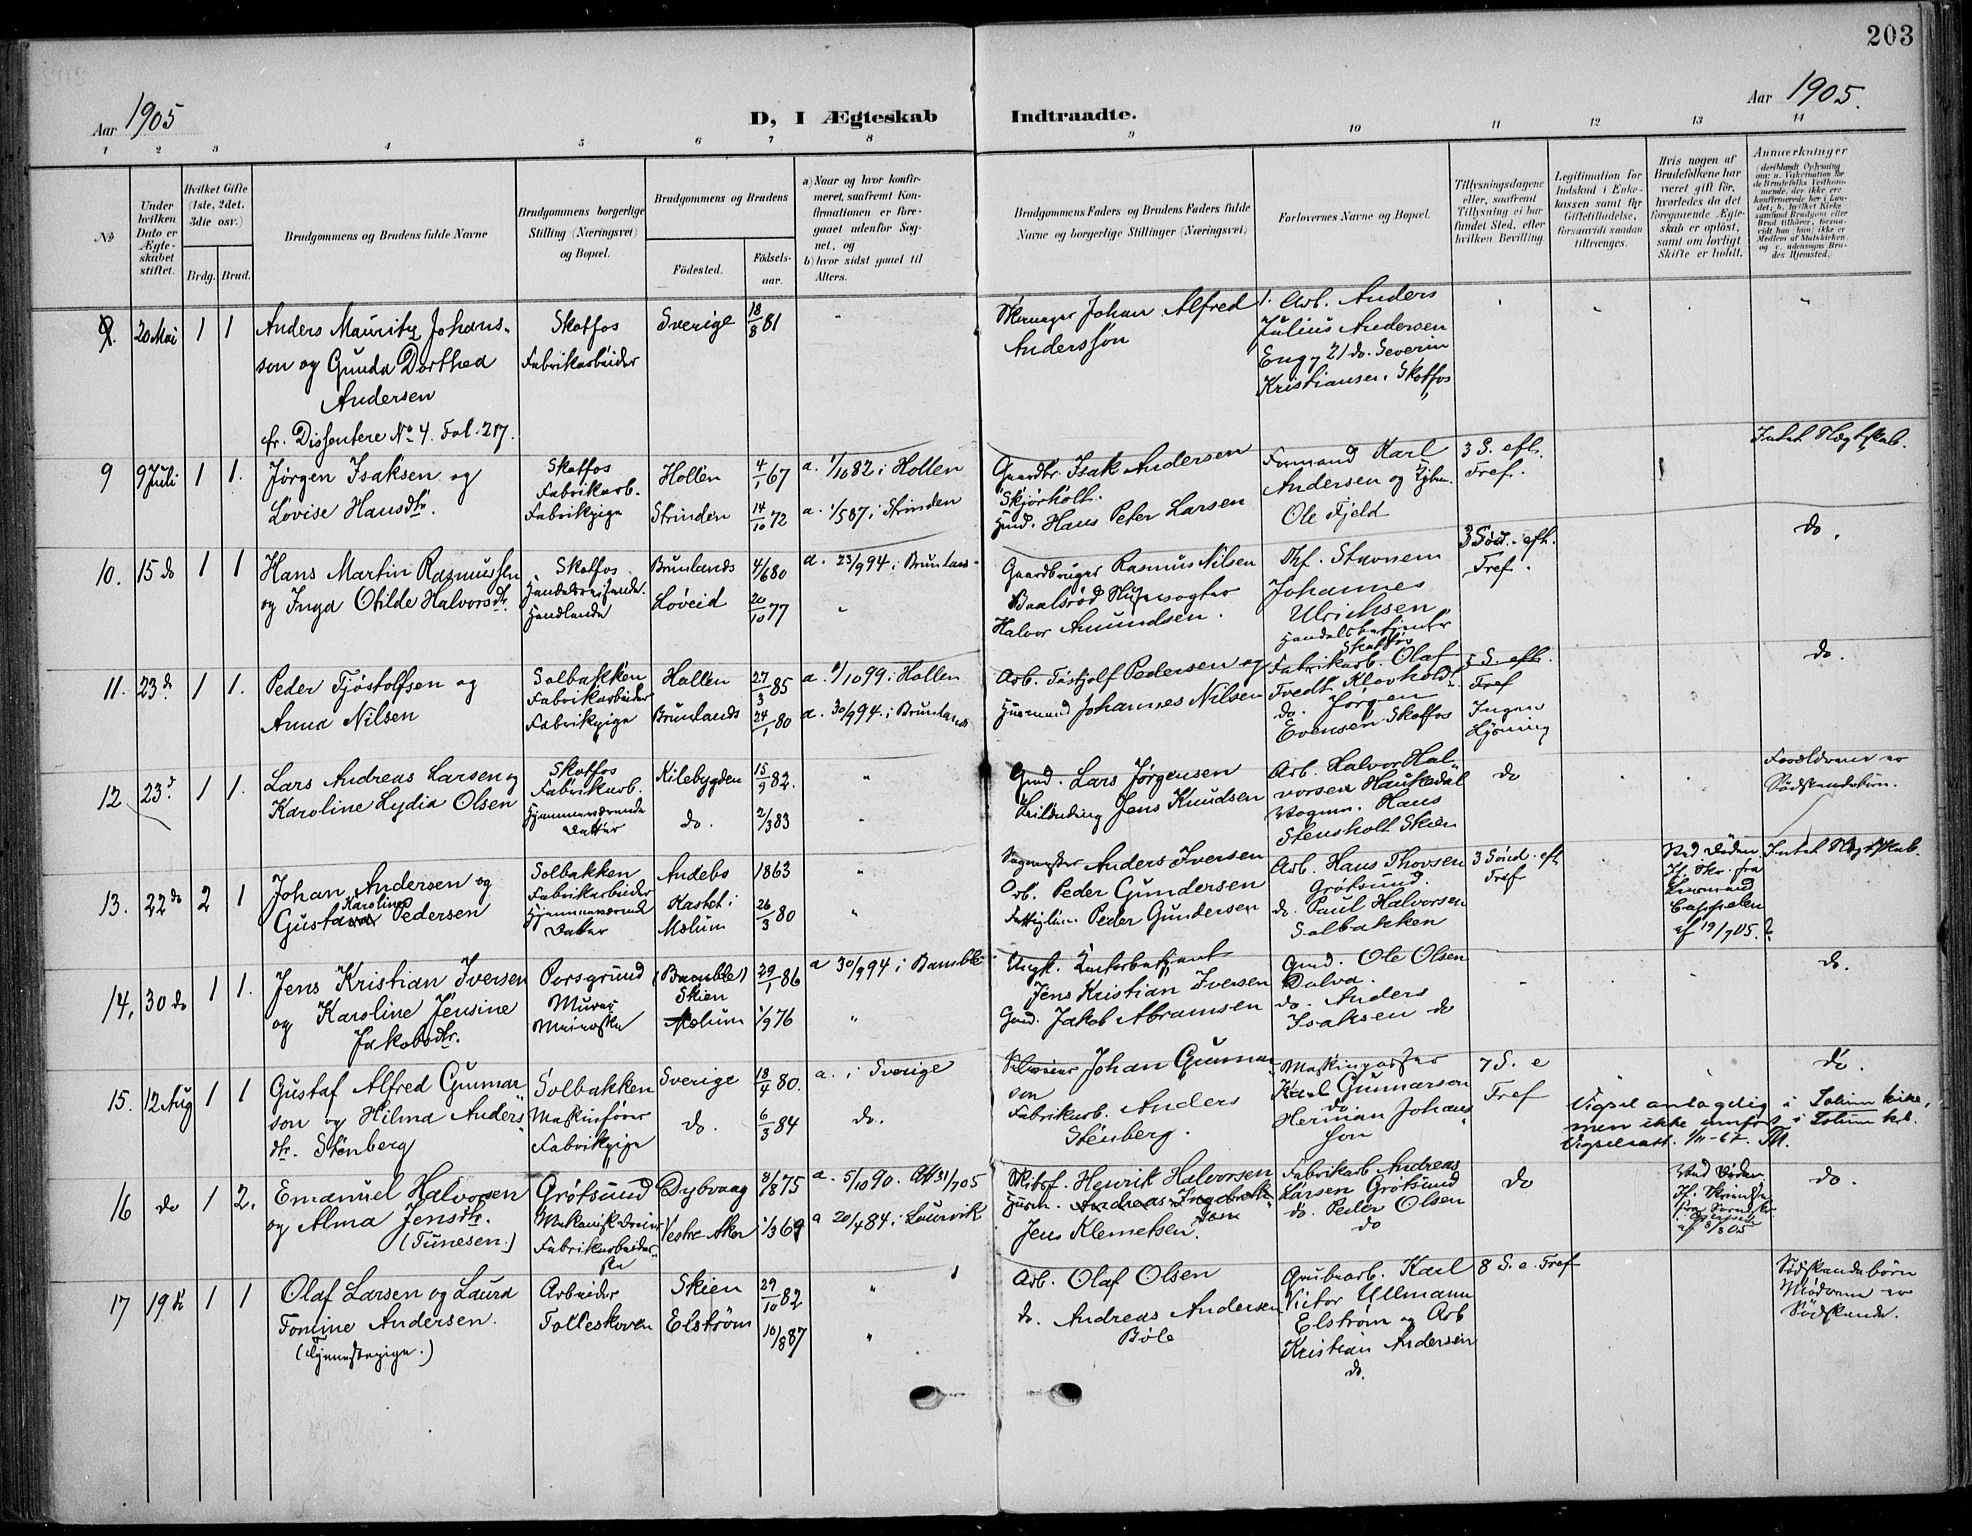 203
Aar 1905
D, I Ægteskab Indtraadte.
Aar 1905.
1 2 3 4 5 6 7 8 9 10 11 12 13 14
No
Under hvilken Dato er Ægteskabet stiftet.
Hvilket Gifte (1ste, 2det, 3die osv.)
Brdg. Brud.
Brudgommens og Brudens fulde Navne
Brudgommens borgerlige Stilling (Næringsvei) og Bopæl.
Brudgommens og Brudens
Födested.
Födselsaar.
a) Naar og hvor konfirmeret, saafremt Konfirmationen er foregaaet udenfor Sognet, og
b) hvor sidst gaaet til Alters.
Brudgommens Faders og Brudens Faders fulde Navne og borgerlige Stillinger (Næringsvei)
Forlovernes Navne og Bopæl.
Tillysningsdagene eller, saafremt Tillysning ei har fundet Sted, efter hvilken Bevilling.
Legitimation for Indskud i Enkekassen samt for Giftetilladelse, forsaavidt saadan tiltrænges.
Hvis nogen af Brudefolkene har været gift för, hvorledes da det foregaaende Ægteskab er oplöst, samt om lovligt Skifte er holdt.
Anmerkninger
20 Mai 1 1
Anders Mauritz Johans-
son og Gunda Dorthea
Andersen
fr. Dissentere No 4. Fol. 217.
Skotfos
Fabrikarbeider
Sverige 18/8 81
Johan Alfred
Anderssön
1. Arb. Anders
Julius Andersen
Eng, 2) do. Severin
Kristiansen. Skotfos
9 9 Juli 1 1.
Jørgen Isaksen og
Lovise Hansdtr.
Skotfos
Fabrikarb.
Fabrikpige
Hollen 4/1 67
Strinden 14/10 72
a. 1/10 82 i Hollen
a. 1/5 87 i Strinden
Gaardbr. Isak Andersen
Skjörholt.
Hans Peter Larsen
Formand Karl
Andersen og
Ole Fjeld
3 S. eft.
Tref.
Intet Slægtskab.
10. 15 do 1 1
Hans Martin Rasmussen
og Inga Otilde Halvorsdtr.
Skotfos
Handelsreisende.
Handlende
Brunlanes 4/6 80
Løveid 20/10 77
a. 23/9 94 i Brunlanes
Gaardbruger Rasmus Nilsen
Halvor Amundsen.
Johannes
Ulrichsen
Handelsbetjent
Skotfos
3 Sönd. eft.
Tref.
do.
11. 23 d 1 1.
Peder Tjöstolfsen og
Anna Nilsen
Solbakken
Fabrikarbeider
Fabrikpige
Hollen 27/3 85
Brunlanes 24/1 80
a. 1/10 99 i Hollen
a. 30/9 94 i Brunlanes
Arb. Töstolf Pedersen og
Husmand Johannes Nilsen
Fabrikarb. Olaf
Tvedt Klovholt
do. Jörgen
Evensen Skotfos
S. eft.
Tref
Ingen
Lysning
do.
12 23 d 1 1.
Lars Andreas Larsen og
Karoline Lydia Olsen
Skotfos
Fabrikarb.
Hjemmeværende
Datter
Kilebygden 15/9 82.
do. 2/3 83
Gmd. Lars Jörgensen
Jens Knudsen
Arb. Halvor Hal-
vorsen Haukedal
Vognm. Hans
Stensholt Skien
do
Forældrene er
Södskendebörn.
13. 22 do 2 1
Johan Andersen og
Karoline
Gustava Pedersen
Solbakken
Fabrikarbeider
Hjemmeværende
Datter
Andebo 1863
Kastet i
Mælum 26/3 80
Sagmester Anders Iversen
Arb. Peder Gundersen
Peder Gundersen
Arb. Hans Thovsen
Grötsund.
do. Paul Halvorsen
Solbakken
3 Sönd. eft
Tref
Ved Döden
If. Skr. fra
Lensmand
Cappelen
af 19/7 05.
Intet Slægtskab.
14. 30 do 1 1.
Jens Kristian Iversen
og Karoline Jensine
Jakobsdtr.
Porsgrund
Murer
(Bamble)
Skien 29/1 86
Mælum 1/9 76
a 30/9 94 i Bamble
Ungk. Kontorbetjent
Jens Kristian Iversen
Gmd. Jakob Abramsen
Gmd. Ole Olsen
Dalva.
do. Anders
Isaksen do
do.
15. 12 Aug 1 1
Gustaf Alfred Gunnar
son og Hilma Anders
dtr. Stenberg
Solbakken
Maskinförer
Fabrikpige
Sverige 18/4 80.
do. 6/3 84
a. i Sverige
do.
Johan Gunnar
son
Fabrikarb. Anders
Stenberg.
Maskinpasser
Karl Gunnarson
do
Herman Johans
son
7 S. e
Tref
do.
Vigsel antagelig i Solum kirke,
men ikke anført i Solum kl.
Vigselsatt. 1/11-67.
16 do 1 2.
Emanuel Halvorsen
og Alma Jensdtr.
(Tunesen.)
Grötsund
Fabrikarbeider-
ske
Dybvaag 8/8 75
Vestre Aker 1/3 69
a. 5/10 90. Att 31/7 05
a 20/4 84 i Laurvik
Skibsf. Henrik Halvorsen
Husm. Andreas Ingebret-
sen
Jens Klemetsen.
Fabrikarb Andreas
Larsen Grötsund
do. Peder Olsen
do
do
Ved Döden
af 8/8 05
do.
17 19 1 1
Olaf Larsen og Laura
Tomine Andersen.
(Tjenestepige.)
Arbeider
Tolleskoven
Skien 29/10 82
Elström 10/8 87
Arb. Olaf Olsen
do. Andreas Andersen
Böle
Grubearb. Karl
Victor Ullmann
Elström og Arb
Kristian Andersen
do.
8 S. e. Tref
Södskendebörn
Mödrene er
Södskende.